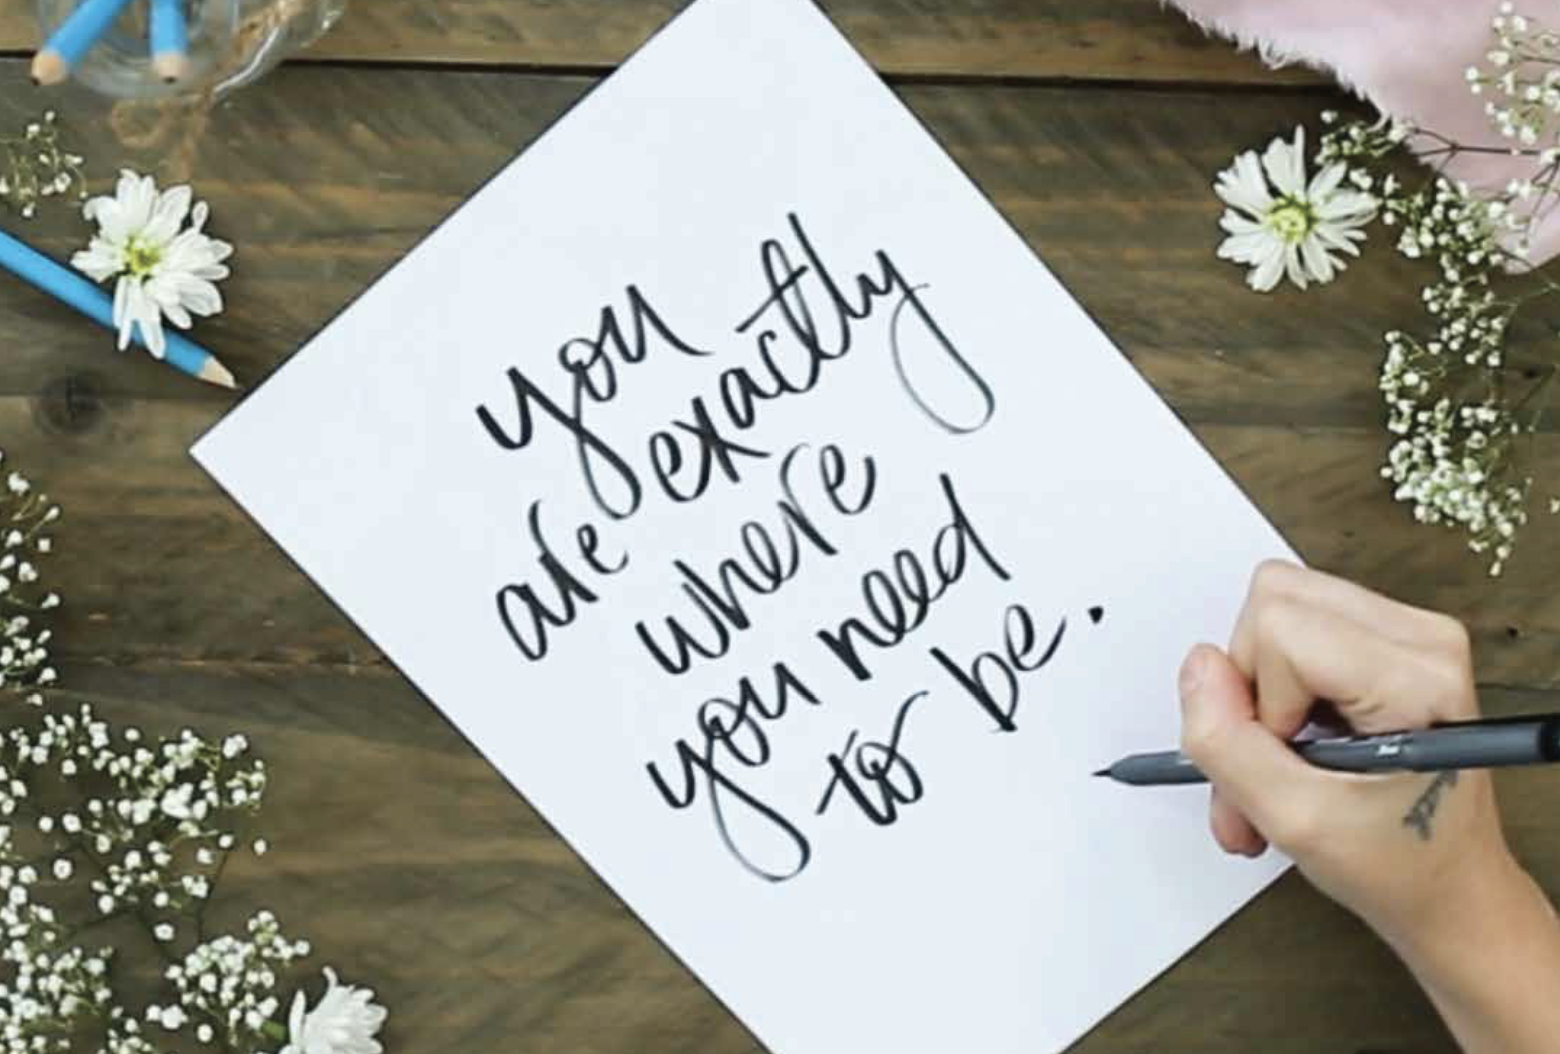 you
are exactly
where
you need
to be.